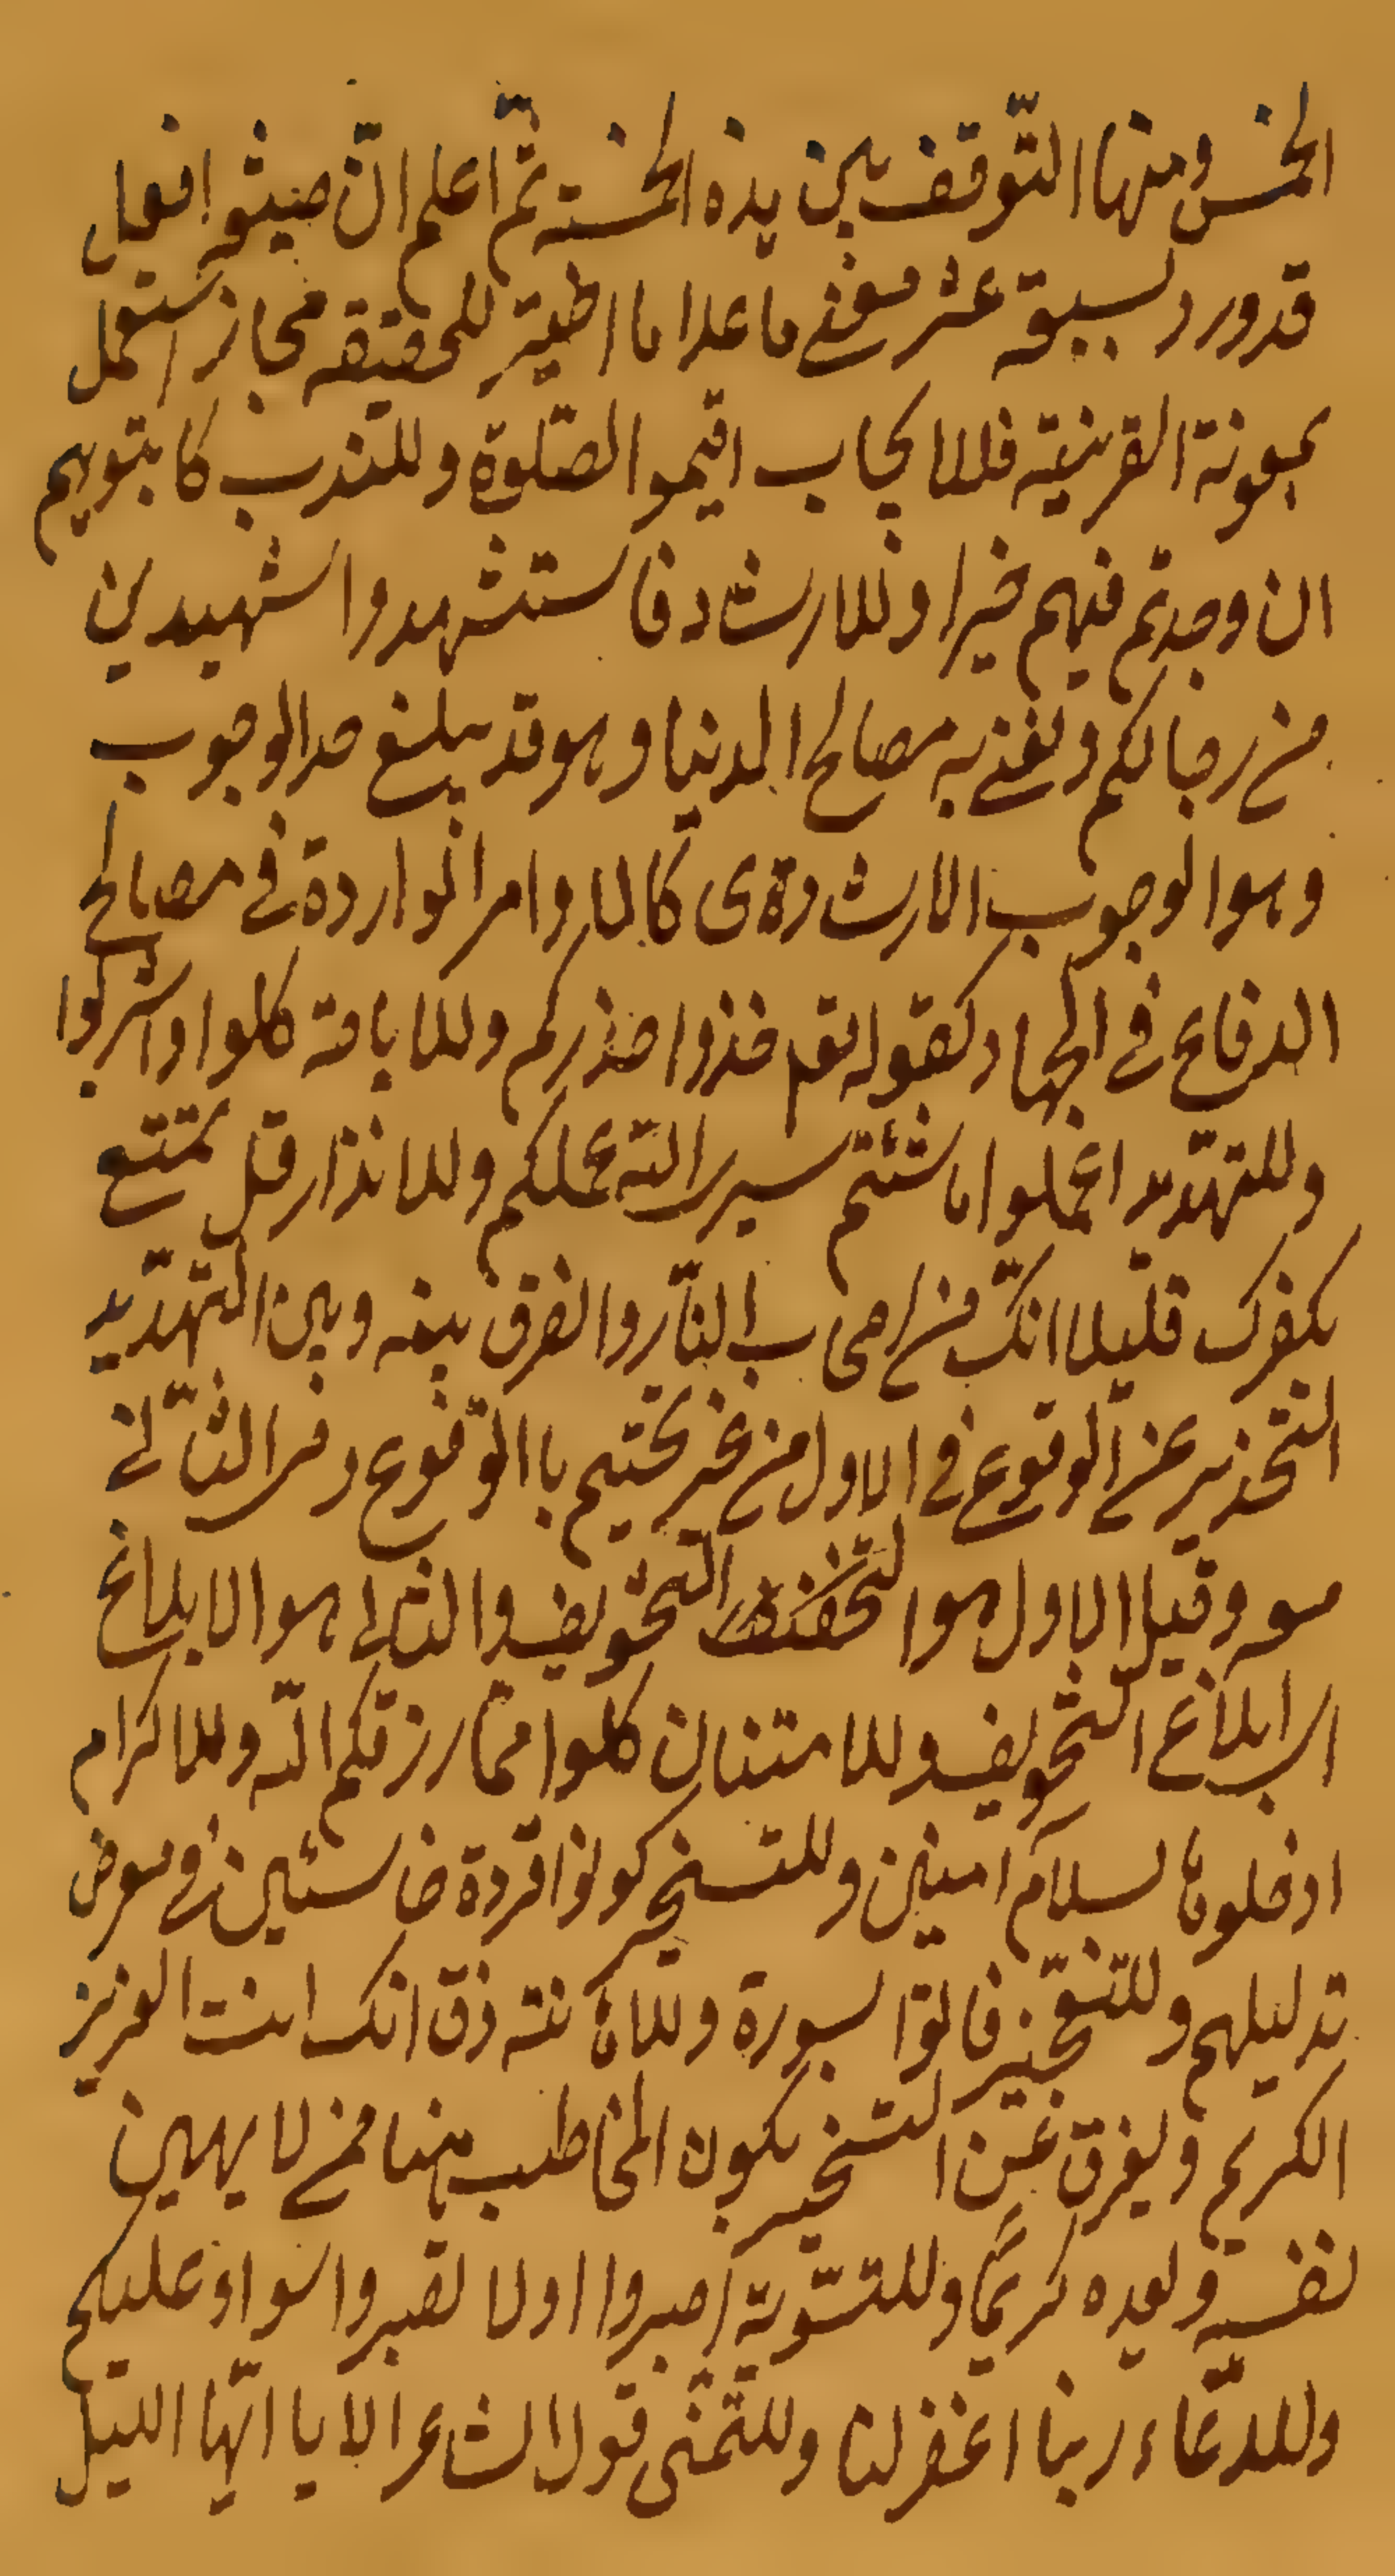 الخمس ومنها التّوقف بين هذه الخمسة ثمّ اعلم انّ صيغة افعل
قد ورد لسبعة عشر معنى ما عدا ما للحقيقة مجاز استعمل
بمعونة القرينة فللايجاب اقيموا الصّلوة وللندب كاتبوهم
ان وجدتم فيهم خيرا وللارشاد فاستشهدوا شهيدين
من رجالكم ونعنى به مصالح الدنيا وهو قد يبلغ حد الوجوب
وهو الوجوب الارشادى كالاوامر الواردة فى مصالح
الدفاع فى الجهاد كقوله تعم خذوا حذركم وللاباحة كلوا واشربوا
وللتهدّيد اعملوا ما شئتم سيرى اللّه عملكم وللانذار قل تمتع
بكفرك قليلا انّك من اصحاب النّار والفرق بينه وبين التّهدّيد
التحذير عن الوقوع فى الاول من غير تحتيم باالوقوع وفى الثّانى
معه وقيل الاول هو التخويف والثانى هو الابلاغ
اى ابلاغ التخويف وللامتنان كلوا ممّا رزقكم اللّه وللاكرام
ادخلوها بسلام امنين وللتسخير كونوا قردة خاسئين فى معرض
تدليلهم وللتعجيز فاتوا بسورة وللاهانته ذق انك انت العزيز
الكريم ويفرق عن التسخير بكون المخاطب هنا ممن لا يهين
نفسه ويعده كريمًا وللتسّوية اصبروا اولا تصبروا سواء عليكم
وللدّعاء ربنا اغفر لنا وللتّمنى قول الشاعر الا يا ايّها الليل